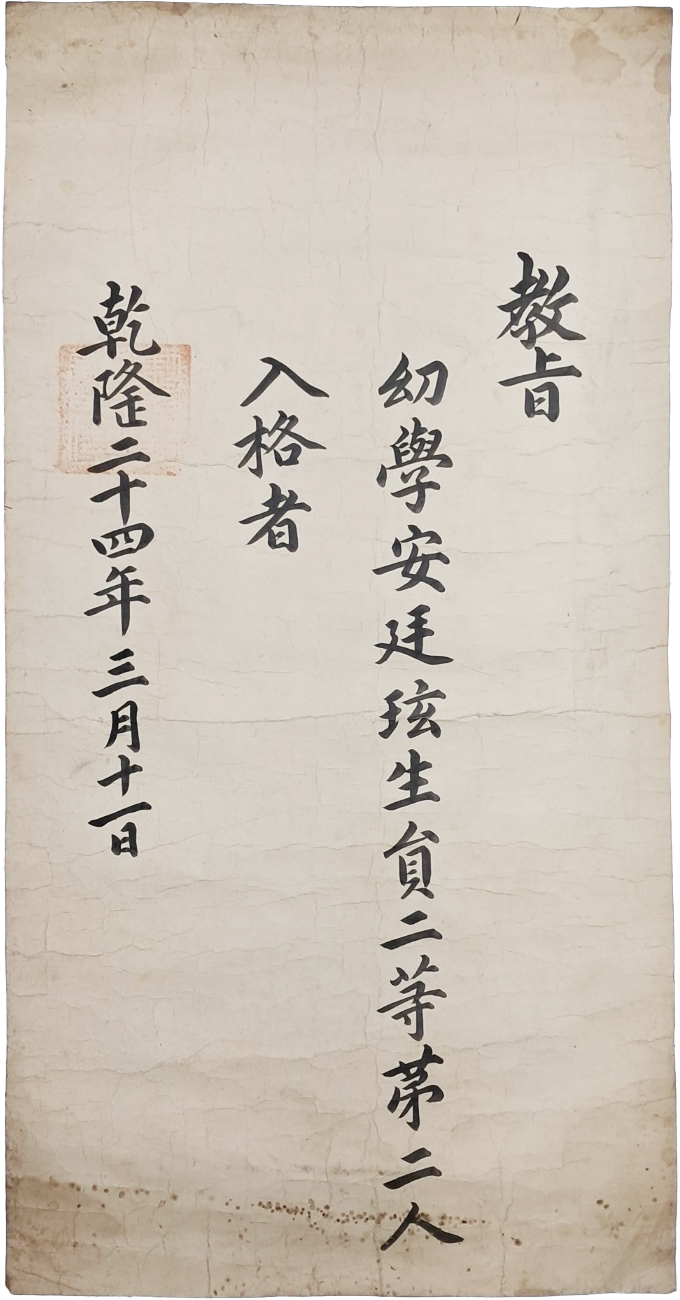 教旨
幼學安廷玹生貟二等苐二人
入格者
乾隆二十四年三月十一日